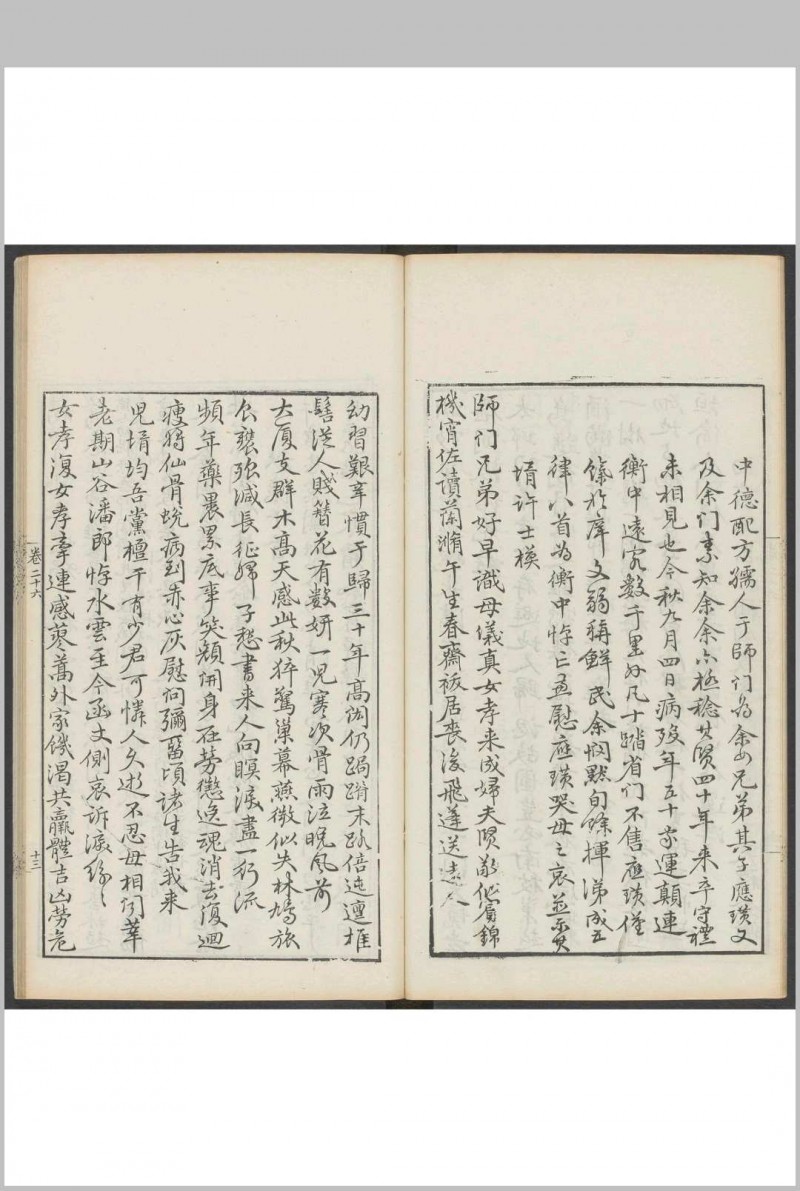 中德配方孺人于師门為余女兄弟其子應璜又
及余门素知余余亦極稔其賢四十年来卒守禮
未相見也今秋九月四日病殁年五十家運顛連
衡中遠客數千里外凡十踏省门不售應璜僅
餼於庠文弱稱鮮民余悶默旬餘揮涕成五
律八首為衡中悼亡並慰應璜哭母之哀並示
壻許士模
師门兄弟好早識母儀真女孝来成婦夫賢敬似賓錦
機宵佐讀蘭滫午生春齋祓居喪後飛蓬送遠人
幼習艱辛慣于歸三十年高閎仍跼蹐末路倍迍邅椎
髻從人賤簪花有數妍一兒寒次骨雨泣晚風前
大厦支群木高天感此秋猝驚巢幕燕微似失林鳩旅
食裝強減長征婦子愁書来人向瞑淚盡一行流
頻年藥裹累底事笑顏開身在勞德逸魂消去復迴
瘦將仙骨蛻病到赤心灰慰问彌留頃諸生告我来
兒壻均吾黨檀干有少君可憐人久逝不忍母相问華
老期山谷潘郎悼水雲至今函丈側哀訴淚紛紛
女孝復女孝牽連感蓼蒿外家饑渴共羸體吉凶勞危
卷二十六
十三